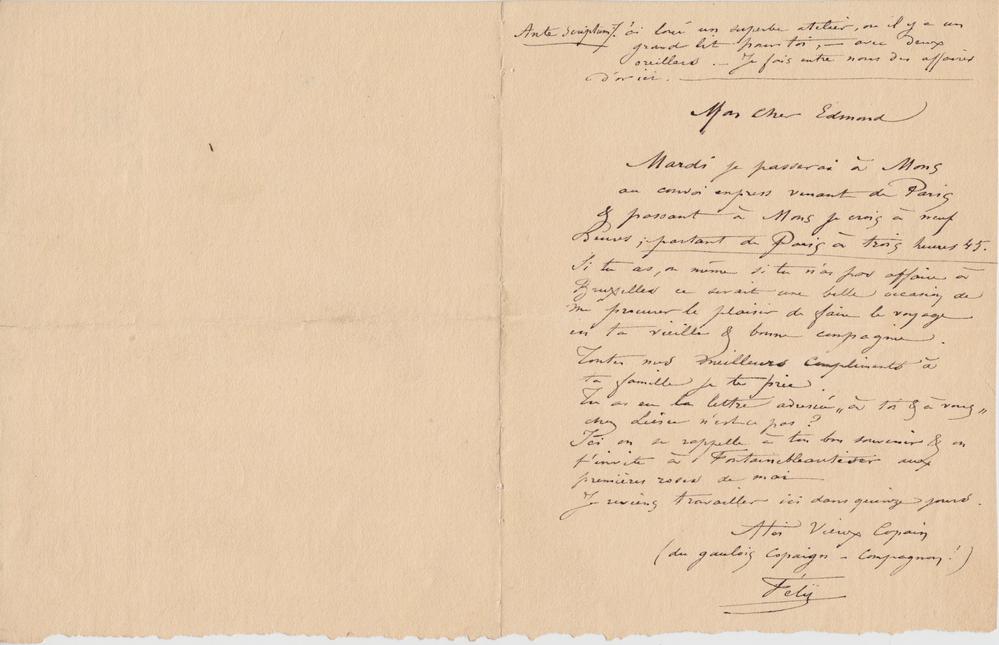 Ante Scriptum J'ai loué un superbe atelier, ou il y a un
grand lit pour toi, – avec deux
oreillers. – Je fais entre nous des affaires
d'or ici.
Mon cher Edmond
Mardi je passerai à Mons
au convoi express venant de Paris
& passant à Mons je crois à neuf
heures, partant de Paris à trois heures 45.
Si tu as, ou même si tu n'as pas affaire à
Bruxelles ce serait une belle occasion de
me procurer le plaisir de faire le voyage
en ta vieille & bonne compagnie.
Toutes mes meilleurs compliments à
ta famille je te prie.
Tu as eu la lettre adressée „à toi & à vous"
chez n'est-ce pas?
Ici on se rappelle à ton bon souvenir & on
t'invite à Fontainebleautiser aux
premières roses de mai
Je reviens travailler ici dans quinze jours.
A toi Vieux Copain
(du gaulois Copaign – Compagnon!)
Fély